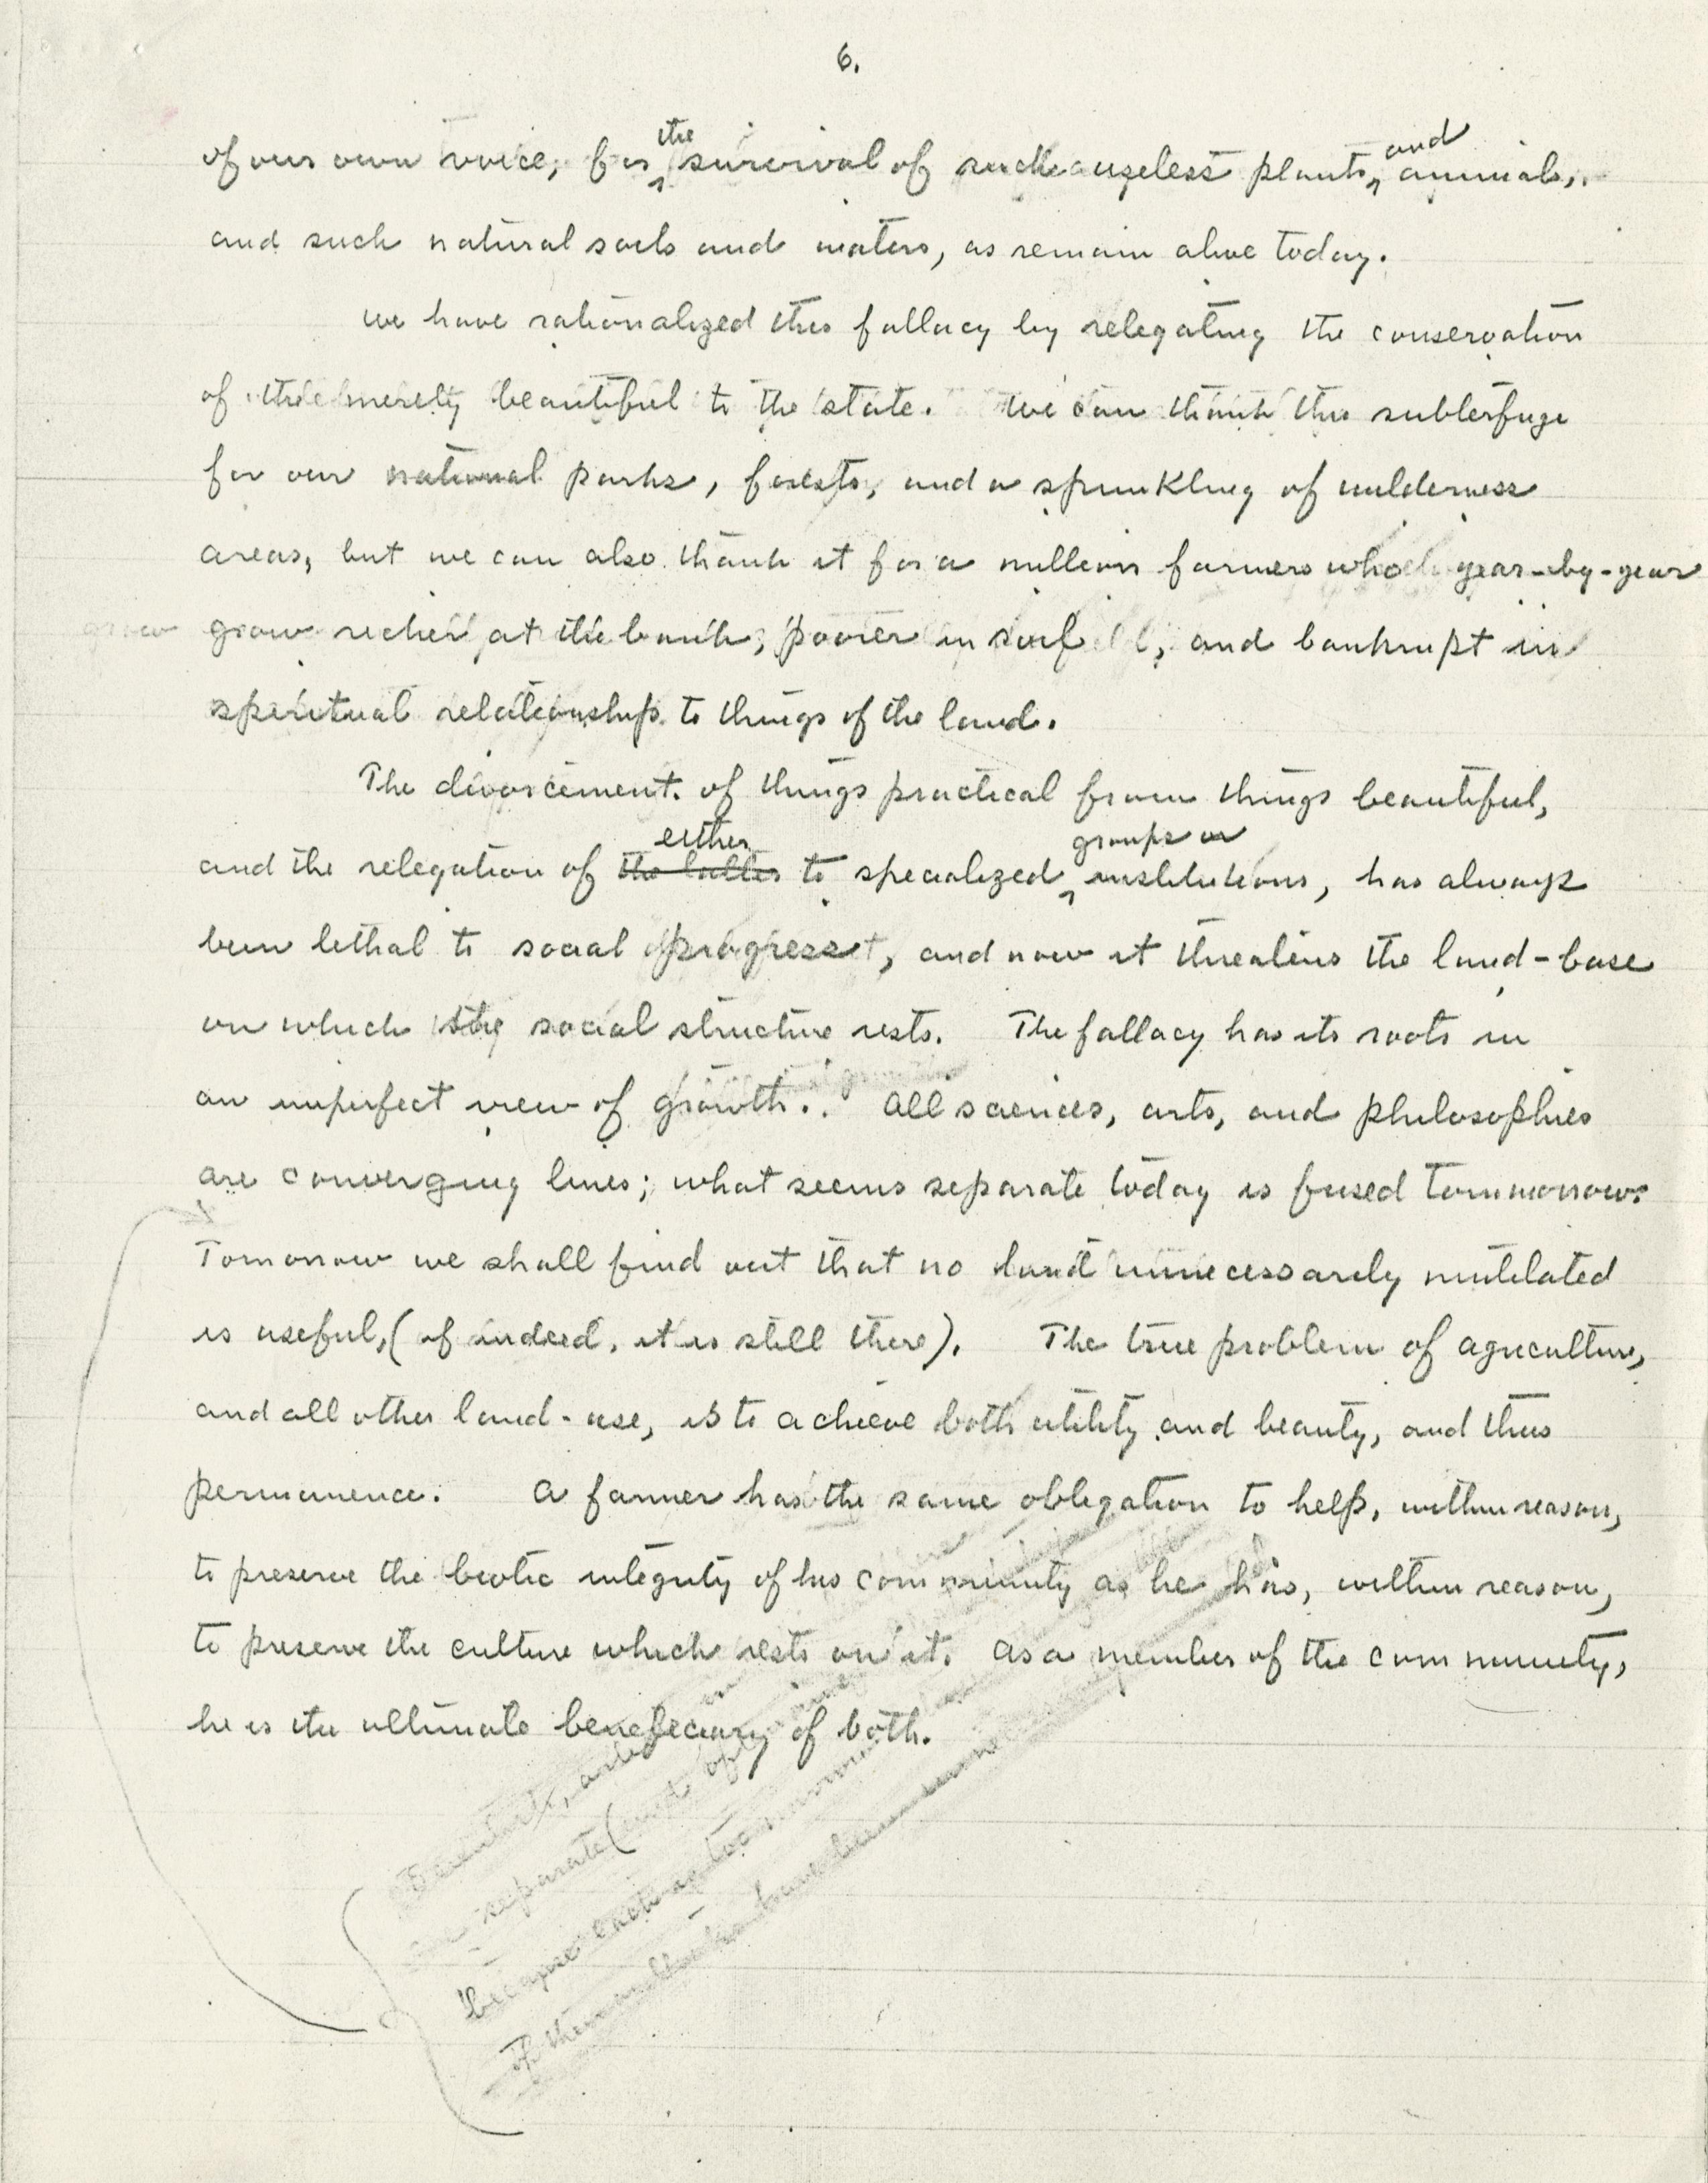 6.
of our own voice, for the survival of such useless plants, and animals,
and such natural soils and waters, as remain alive today.
We have rationalized this fallacy by relegating the conservation
of the merely beautiful to the state. We can thank this subterfuge
for our national parks, forests, and a sprinkling of wilderness
areas, but we can also thank it for a million farmers who year-by-year
grow richer at the bank, poorer in soil, and bankrupt in
spiritual relationship to things of the land.
The divorcement of things practical from things beautiful,
and the relegation of the latter either to specialized groups or institutions, has always
been lethal to social progress, and now it threatens the land-base
on which the social structure rests. The fallacy has its roots in
an imperfect view of growth. All sciences, arts, and philosophies
are converging lines; what seems separate today is fused tommorrow.
Tomorrow we shall find out that no land unnecessarily mutilated
is useful, (if indeed, it is still there). The true problem of agriculture,
and all other land-use, is to achieve both utility and beauty, and thus
permanence. A farmer has the same obligation to help, within reason,
to preserve the biotic integrity of his community as he has, within reason,
to preserve the culture which rests on it. As a member of the community,
he is the ultimate beneficiary of both.
separate (
because
of them